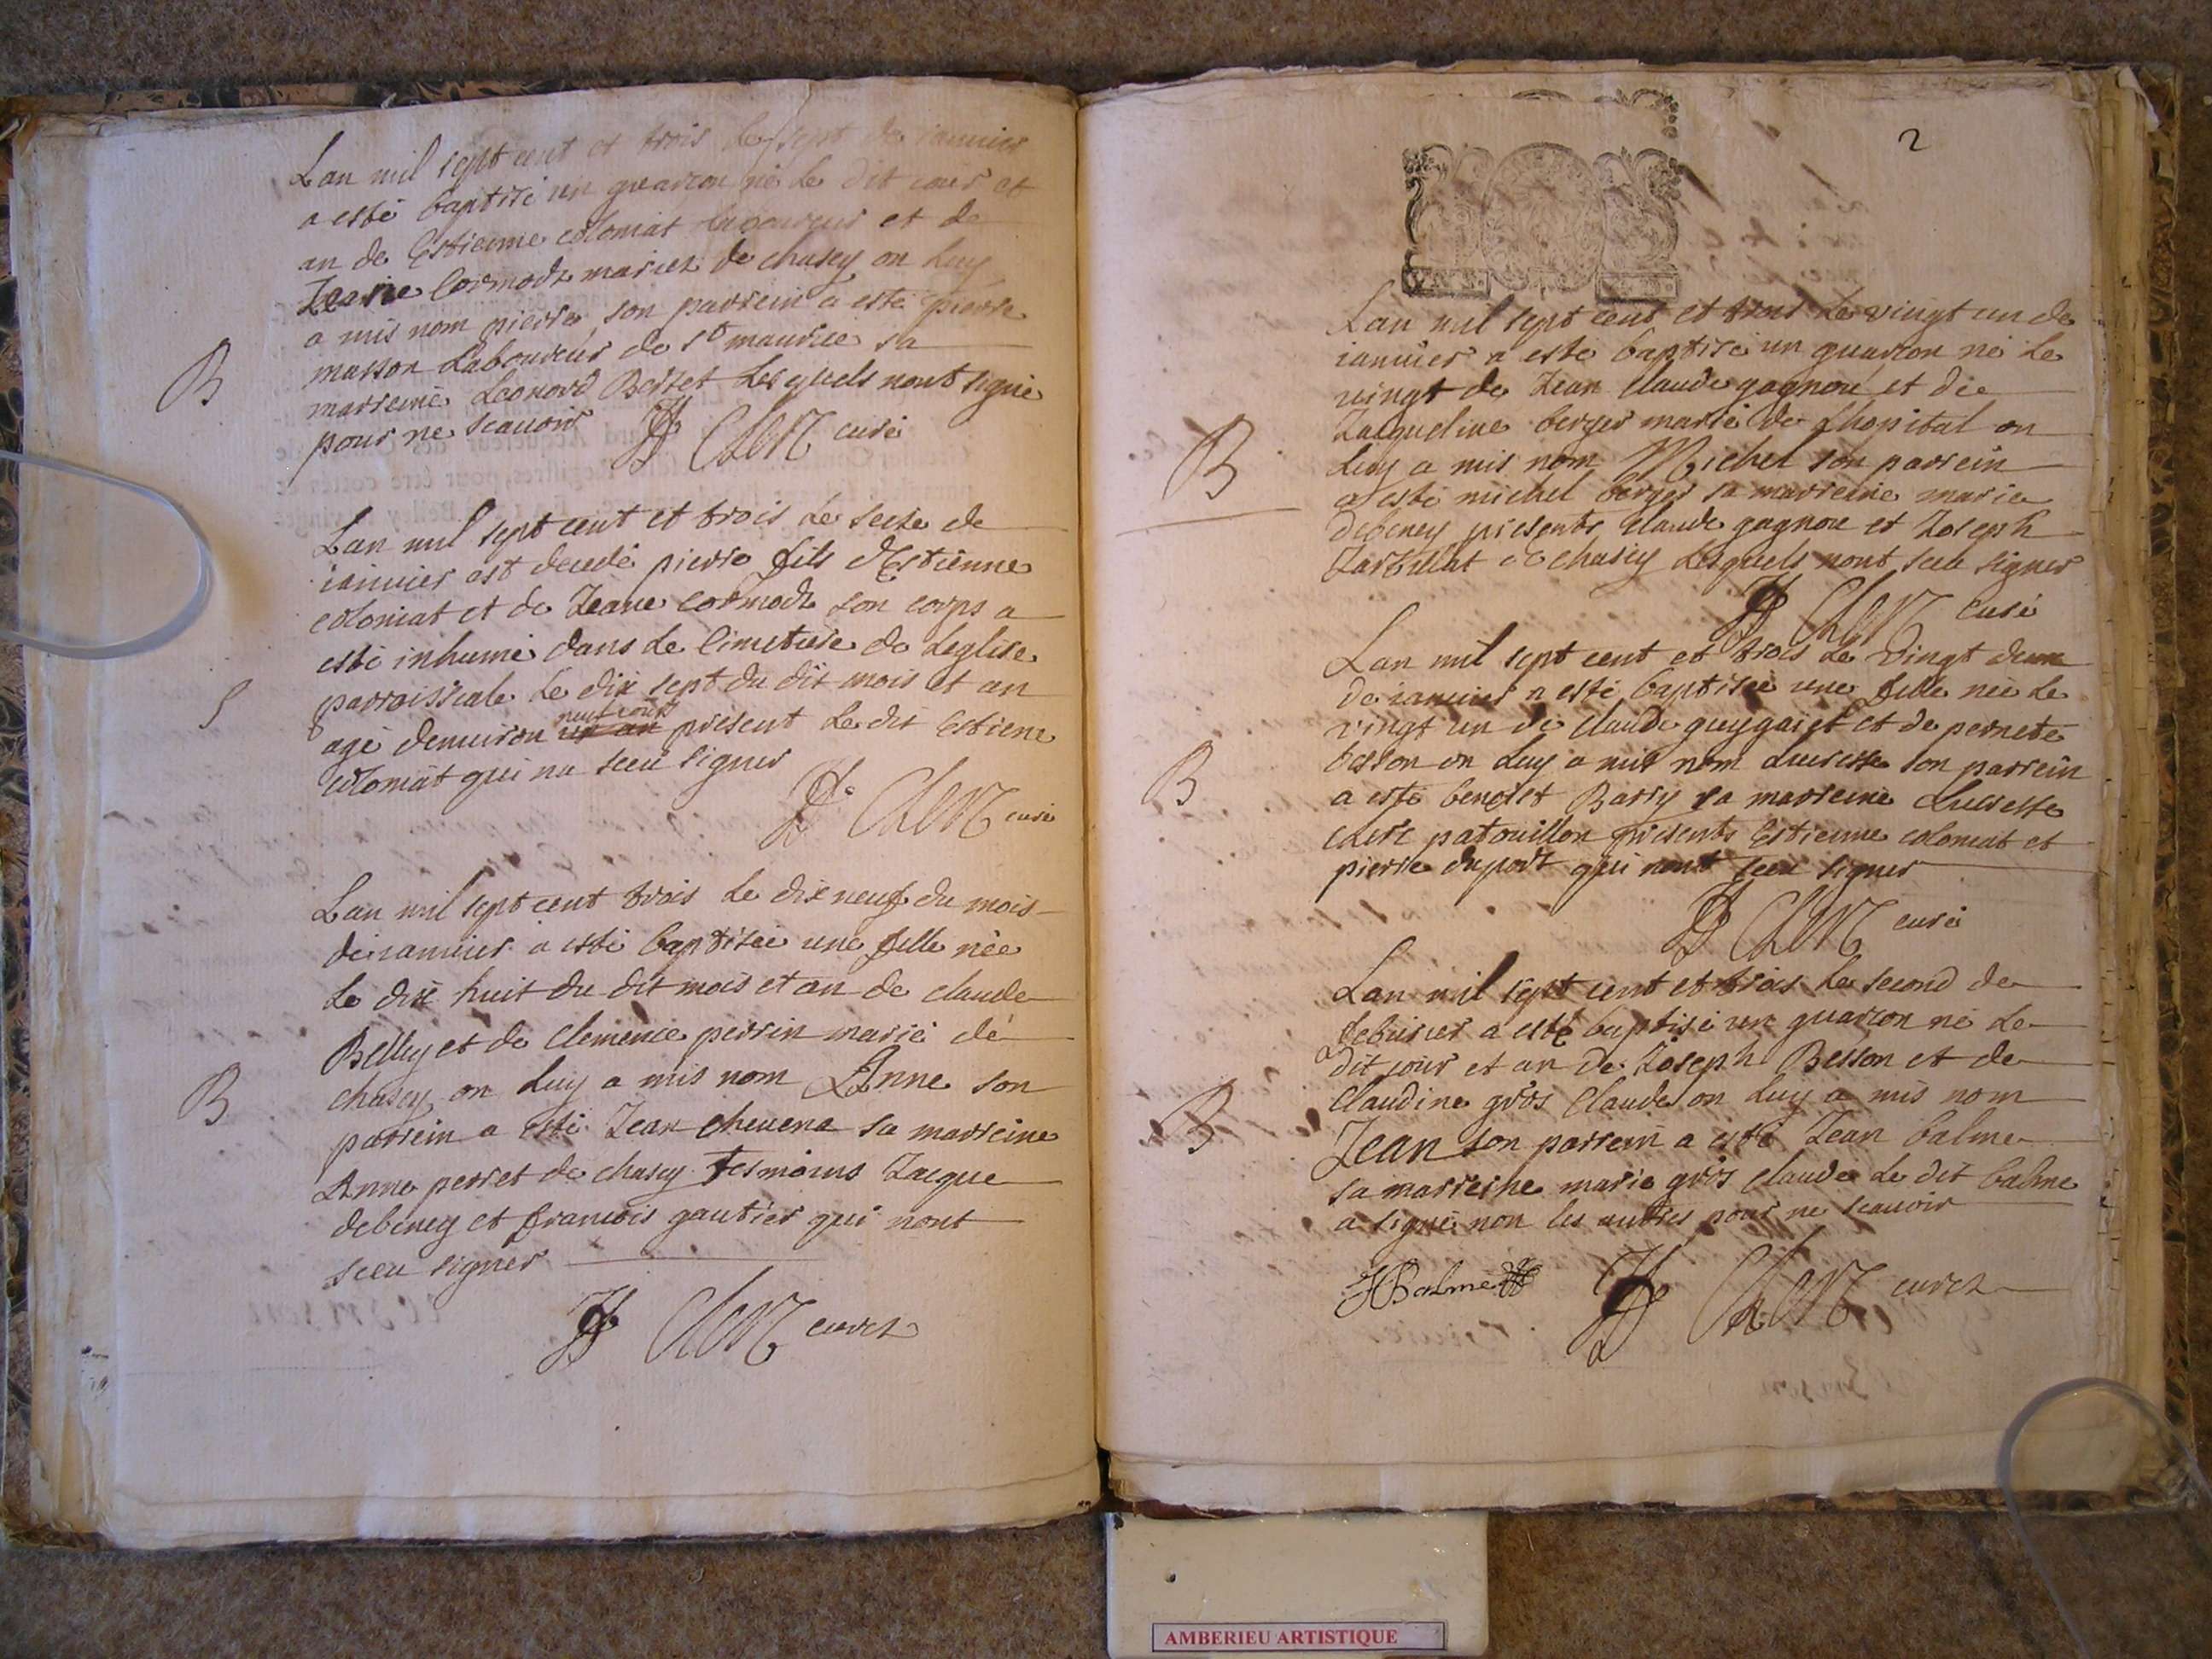 Lan mil sept cent et trois le sept de ianuier
a esté baptisé un guarcon né le dit iour et
an de Estienne colomat laboureur et de
Jeane Cormodz mariez de chasey on luy
a mis nom pierre, son parrein a esté pierre
masson Laboureur de st maurice sa
B
marreine Leonord Bertet lesquels nont signé
pour ne scauoir
Clerc curé
Lan mil sept cent et trois le seize de
ianuier est decedé pierre fils dEstienne
colomat et de Jeane cormodz son corps a
esté inhumé dans le Cimetiere de Leglise
parroissiale le dix sept du dit mois et an
S
agé denuiron un an neuf iours present le dit Estiene
colomat qui na sceu signer
Clerc curé
Lan mil sept cent trois le dix neuf du mois
de ianuier a esté baptisée une fille née
le dix huit du dit mois et an de claude
Belluy et de Clemence perrin marié de
B
chasey on luy a mis nom Anne son
parrein a esté Jean cheuena sa marreine
Anne perret de chasey tesmoins Jacque
debeney et francois gautier qui nont
sceu signer
Clerc curez
2
Lan mil sept cent et trois le vingt un de
ianuier a esté baptisé un guarcon né le
vingt de Jean Claude gagnou et de
Jacqueline berger marié de lhopital on
B
luy a mis nom Michel son parrein
a esté michel berger sa marreine marie
debeney presents claude gagnou et Joseph
de chasey lesquels nont sceu signer
Clerc Curé
Lan mil sept cent et trois le vingt deux
de ianuier a esté baptisée une fille née le
vingt un de claude guygaret et de pernete
B
besson on luy a mis nom Lucresse son parrein
a esté benoist Barry sa marreine Lucresse
clerc patouillon presents Estienne colomat et
pierre duport qui nont sceu signer
Clerc curé
Lan mil sept cent et trois le second de
febvrier a esté baptisé un guarcon né le
dit iour et an de Joseph Besson et de
B
Claudine gros Claude on luy a mis nom
Jean son parrein a esté Jean balme
sa marreine marie gros claude le dit balme
a signé non les autres pour ne scauoir
JBalme
Clerc curez
AMBERIEU ARTISTIQUE